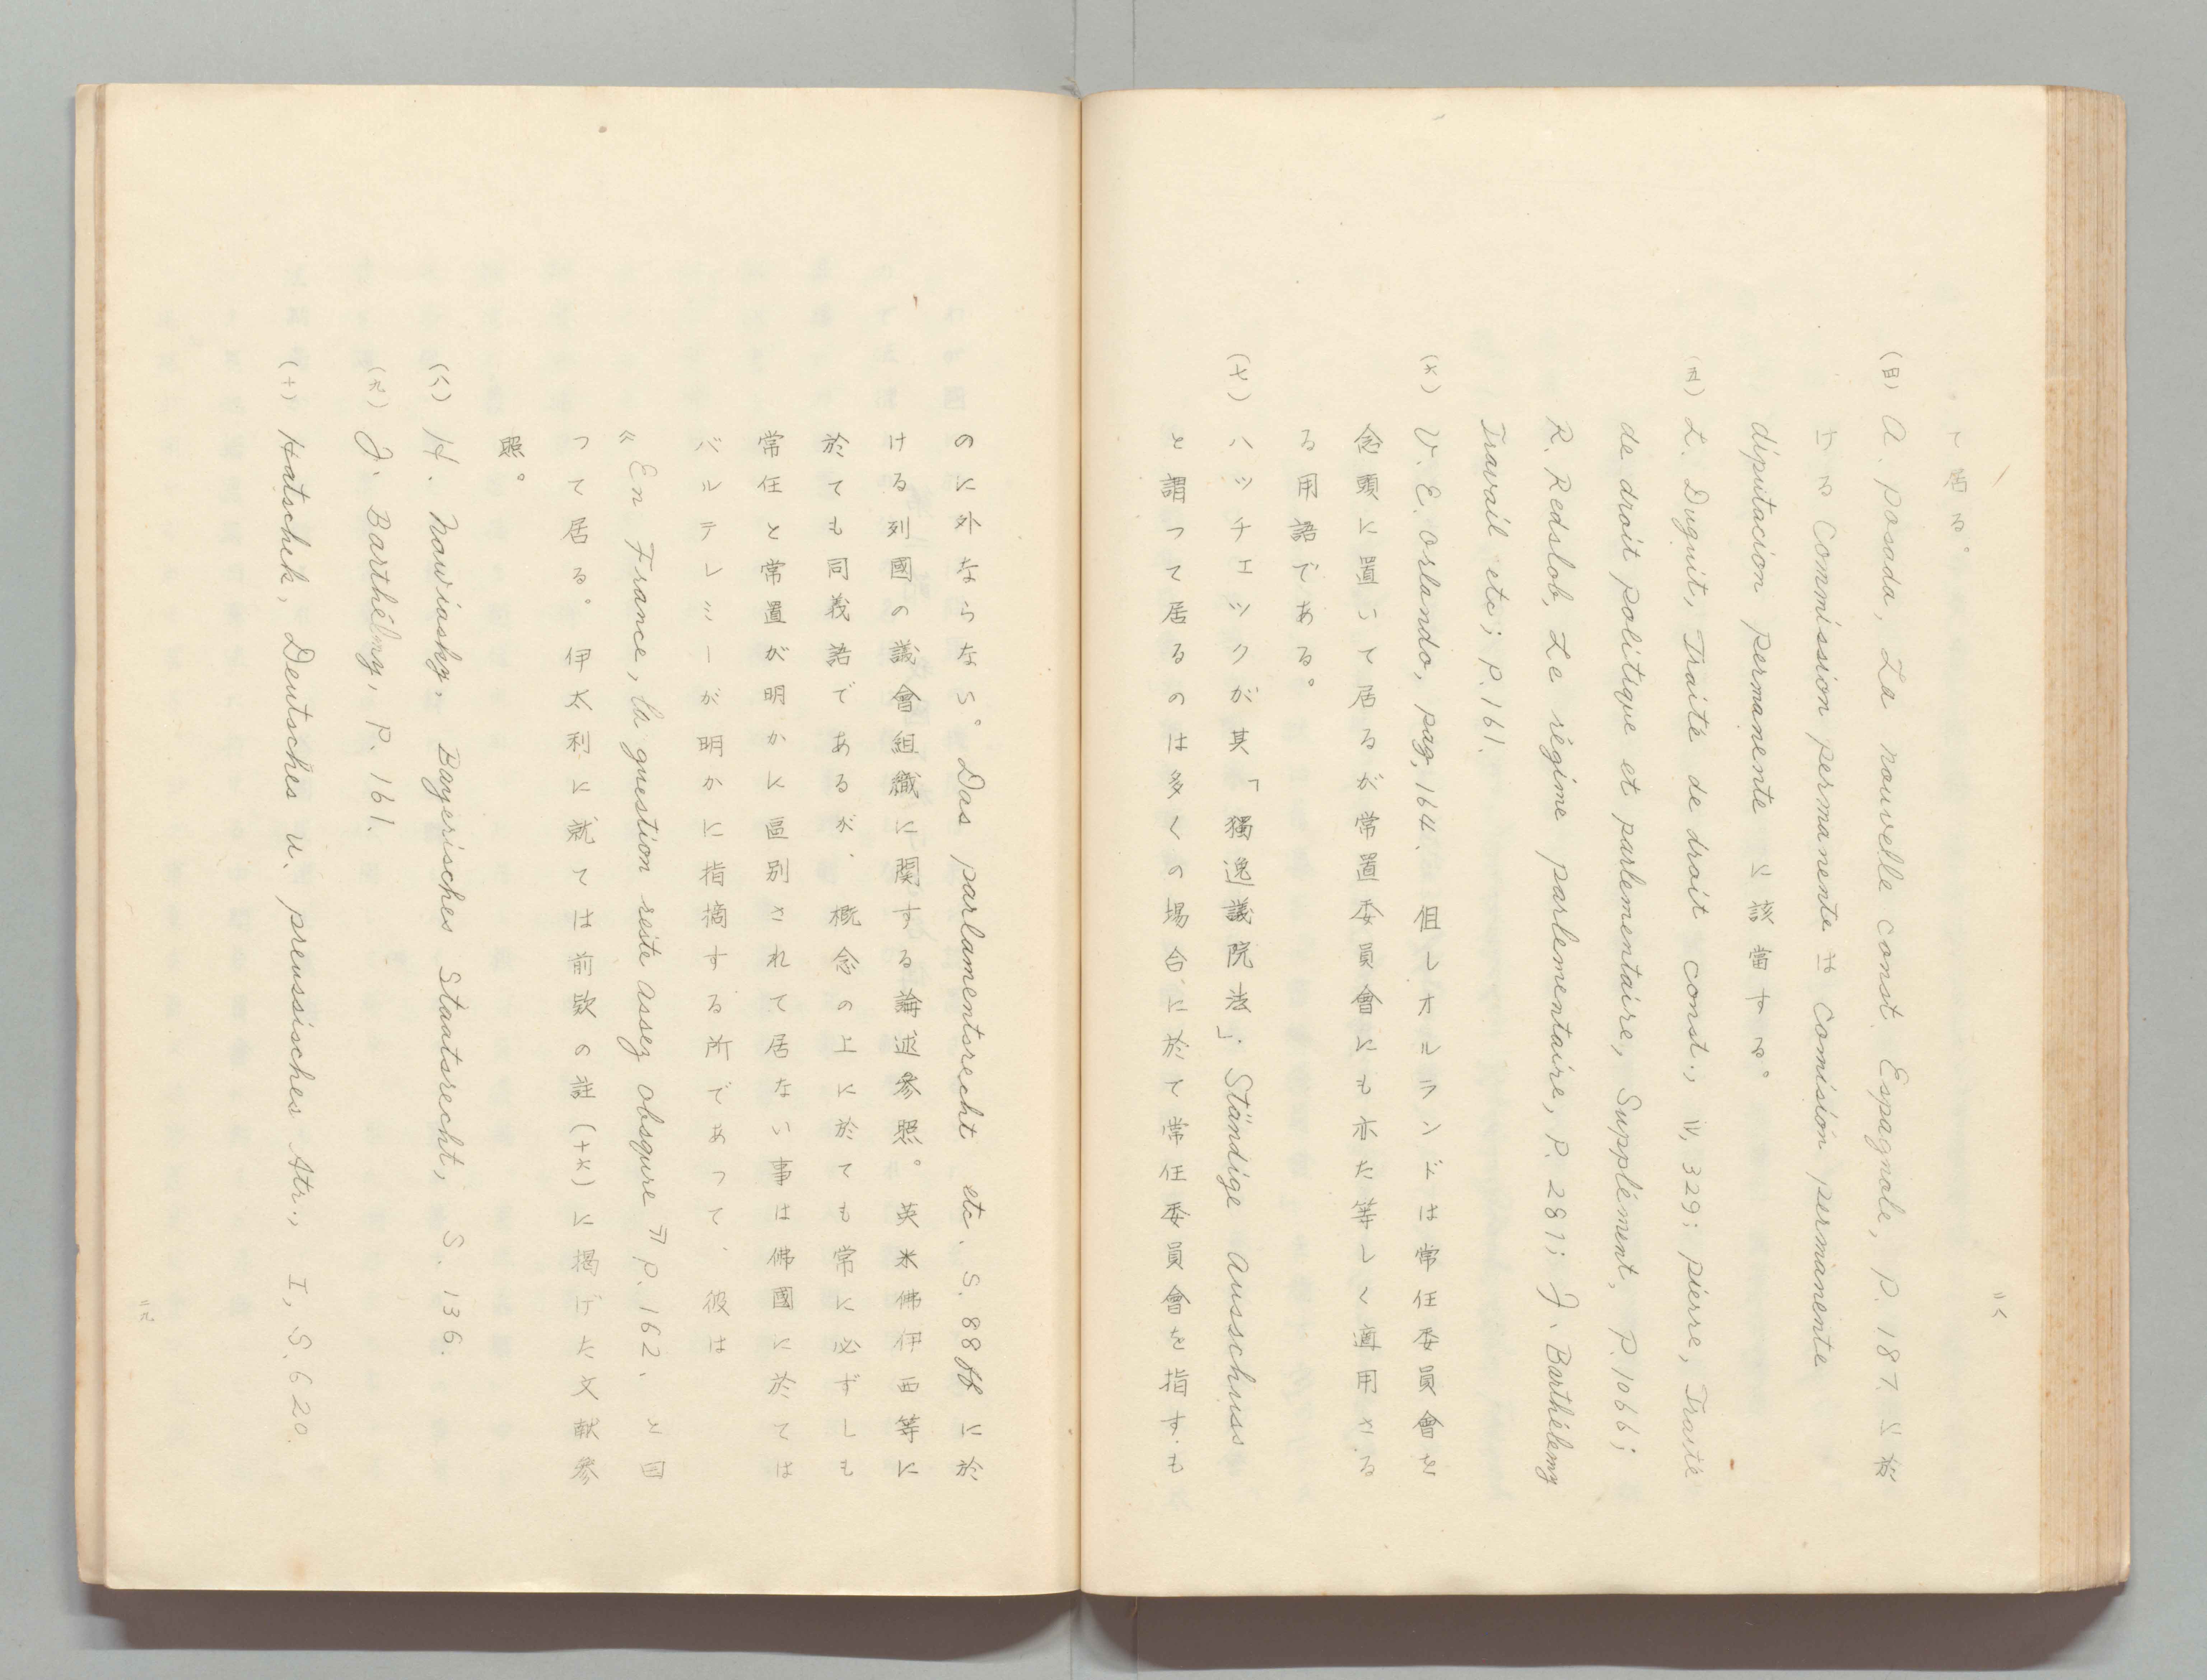 て居る。
(四) A. Posada, La nouvelle const. Espagnole, P. 187. に於
ける Commission permanente は Comisión permanente
diputacion permanente に該當する。
(五) L. Duguit, Traité de droit const., Ⅳ, 329; pierre, Traité
de droit politique et parlementaire, Supplément, P. 1066;
R. Redslob, Le régime parlementaire, P. 281; J. Barthélemy
Travail etc; P. 161.
(六) V. E. Orlando, pag, 164. 但しオルランドは常任委員會を
念頭に置いて居るが常置委員會にも亦た等しく適用さる
る用語である。
(七) ハッチエックが其「獨逸議院法」. Ständige Ausschuss
と謂つて居るのは多くの場合に於て常任委員會を指すも
二八
のに外ならない。Das parlamentsrecht etc. S. 88ff に於
ける列國の議會組織に関する論述参照。英米佛伊西等に
於ても同義語であるが、概念の上に於ても常に必ずしも
常任と常置が明かに區別されて居ない事は佛國に於ては
バルテレミーが明かに指摘する所であつて、彼は
《En France, la question reste assez obsqure》P. 162. と曰
つて居る。伊太利に就ては前欵の註(十六)に揭げた文献参
照。
(八) H. Nawiasky. Bayerisches Staatsrecht, S. 136.
(九) J. Barthélmy, P. 161.
(十) Hatschek, Deutsches u. preussisches Str., I, S. 620.
二九